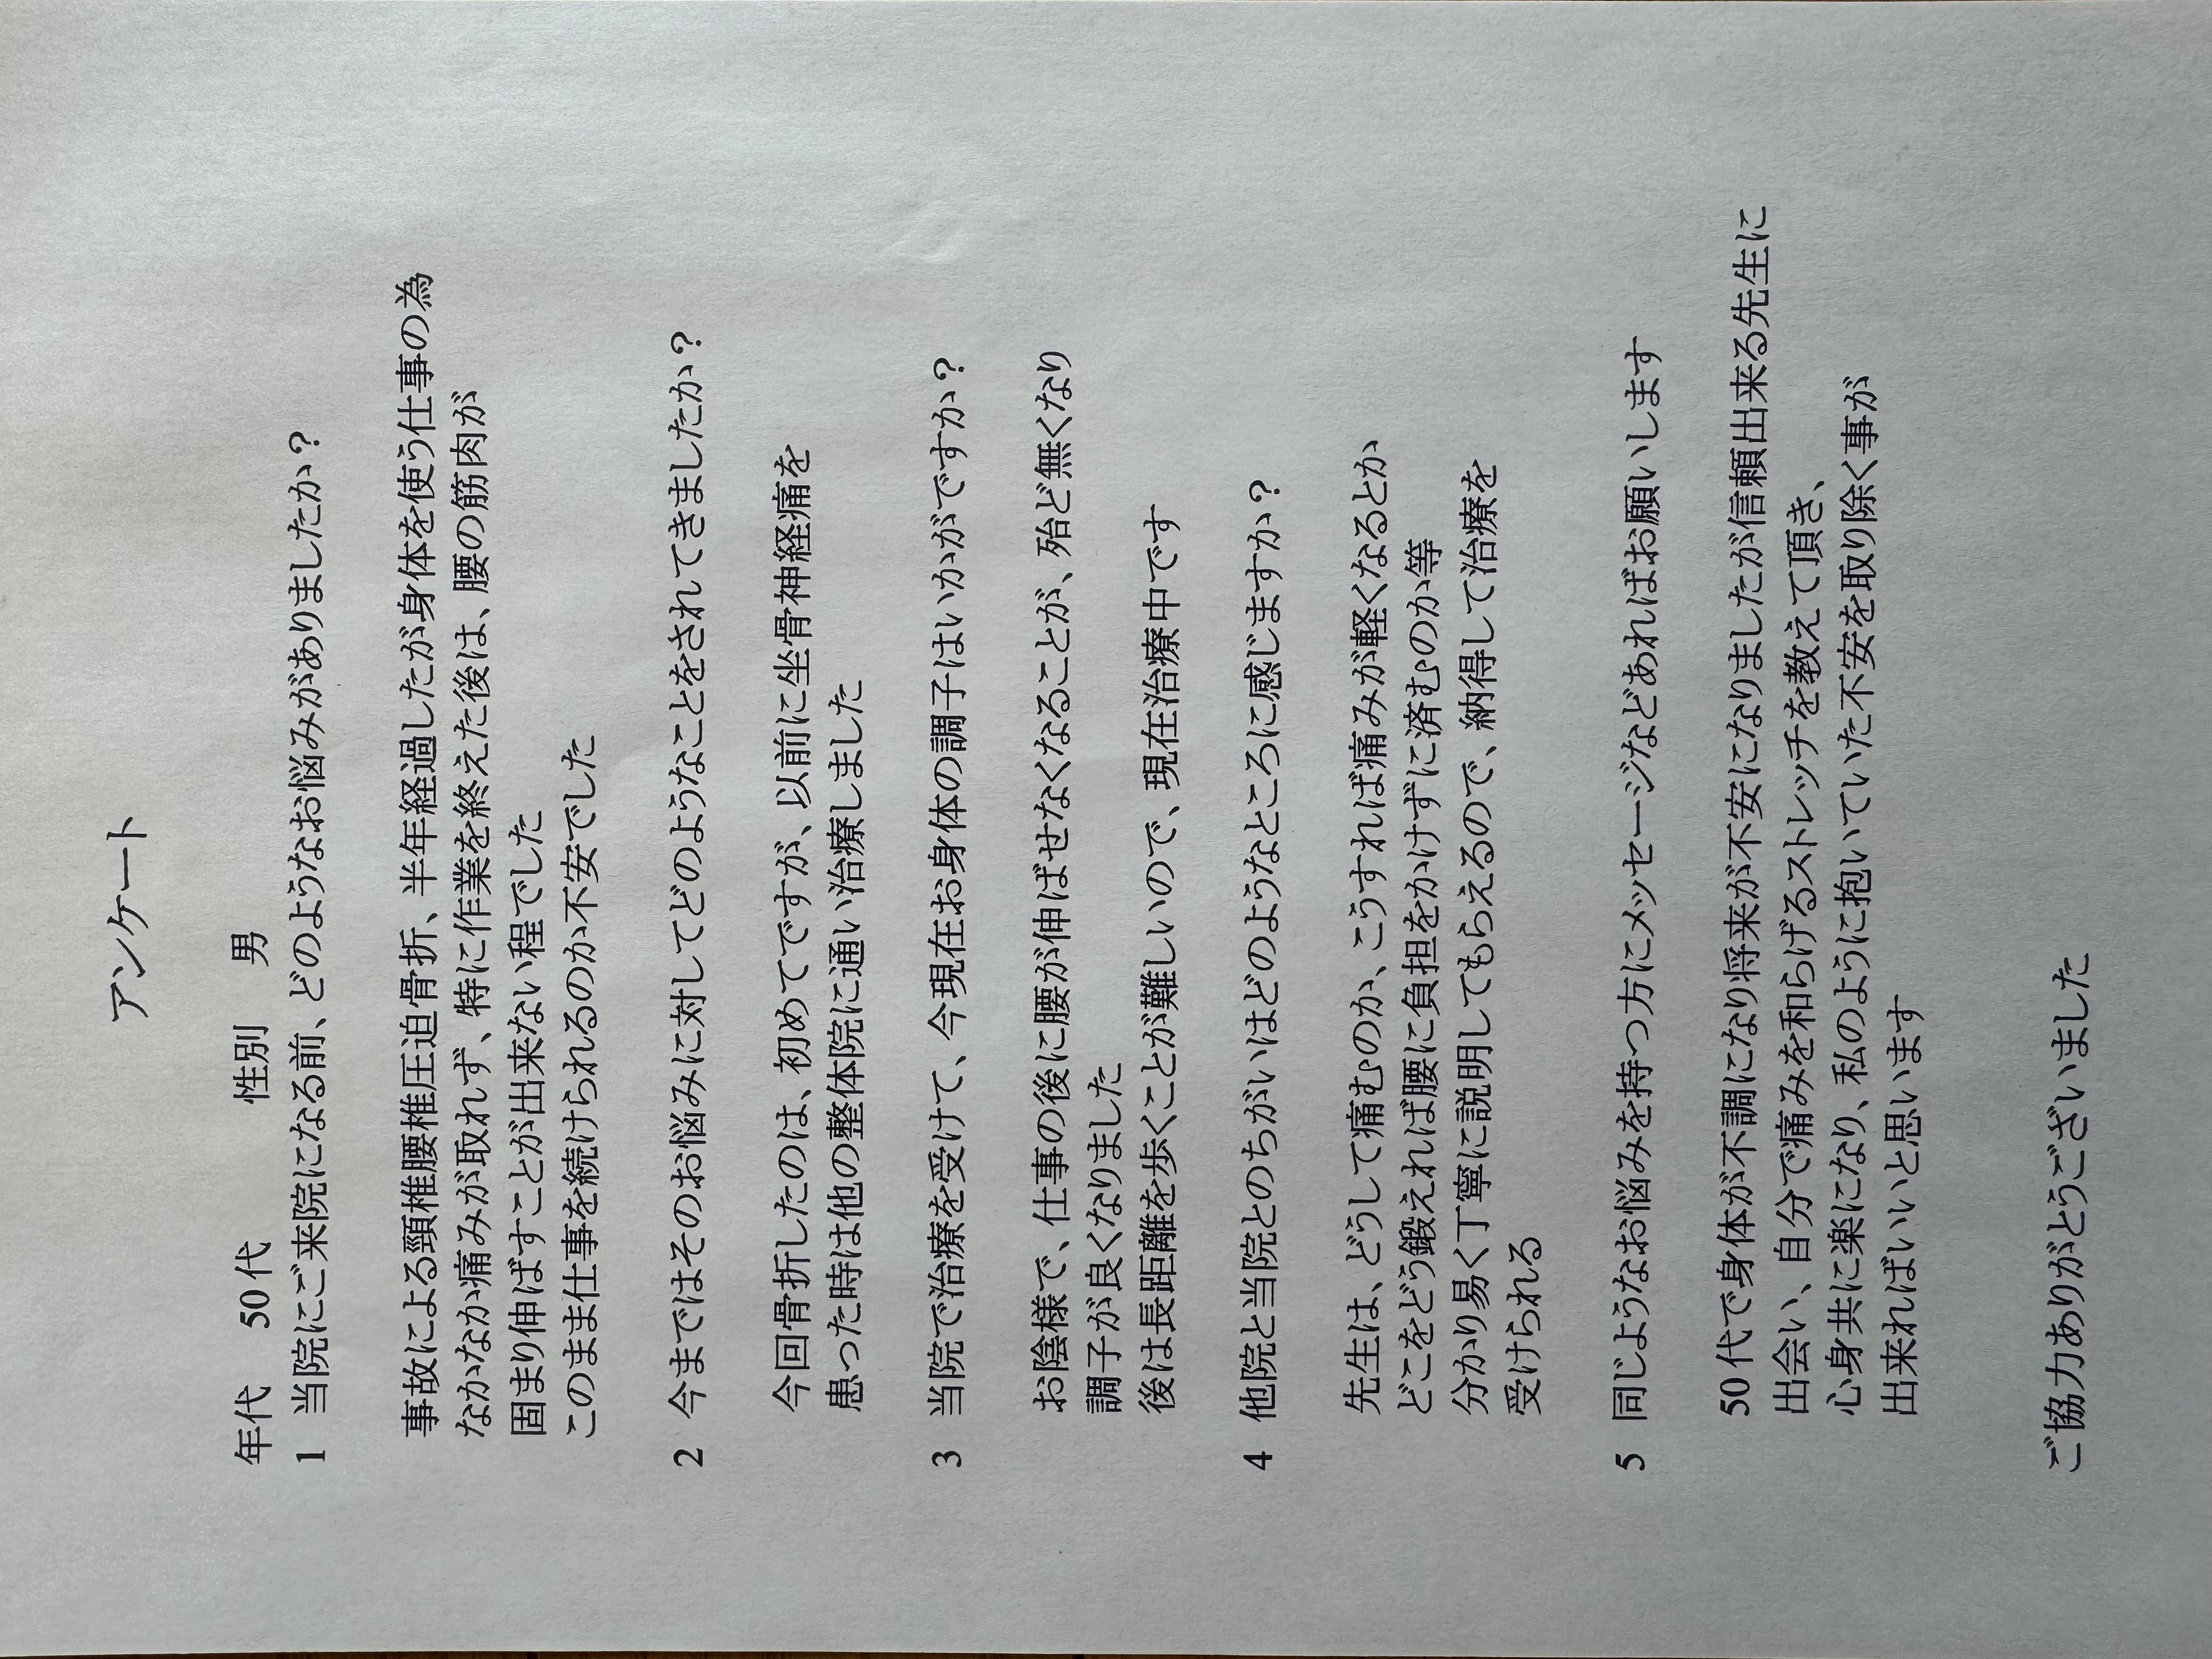 アンケート
年代 50代 性別 男
1 当院にご来院になる前、どのようなお悩みがありましたか？
事故による頸椎腰椎圧迫骨折、半年経過したが身体を使う仕事の為
なかなか痛みが取れず、特に作業を終えた後は、腰の筋肉が
固まり伸ばすことが出来ない程でした
このまま仕事を続けられるのか不安でした
2 今まではそのお悩みに対してどのようなことをされてきましたか？
今回骨折したのは、初めてですが、以前に坐骨神経痛を
患った時は他の整体院に通い治療しました
3 当院で治療を受けて、今現在お身体の調子はいかがですか？
お陰様で、仕事の後に腰が伸ばせなくなることが、殆ど無くなり
調子が良くなりました
後は長距離を歩くことが難しいので、現在治療中です
4 他院と当院とのちがいはどのようなところに感じますか？
先生は、どうして痛むのか、こうすれば痛みが軽くなるとか
どこをどう鍛えれば腰に負担をかけずに済むのか等
分かり易く丁寧に説明してもらえるので、納得して治療を
受けられる
5 同じようなお悩みを持つ方にメッセージなどあればお願いします
50代で身体が不調になり将来が不安になりましたが信頼出来る先生に
出会い、自分で痛みを和らげるストレッチを教えて頂き、
心身共に楽になり、私のように抱いていた不安を取り除く事が
出来ればいいと思います
ご協力ありがとうございました